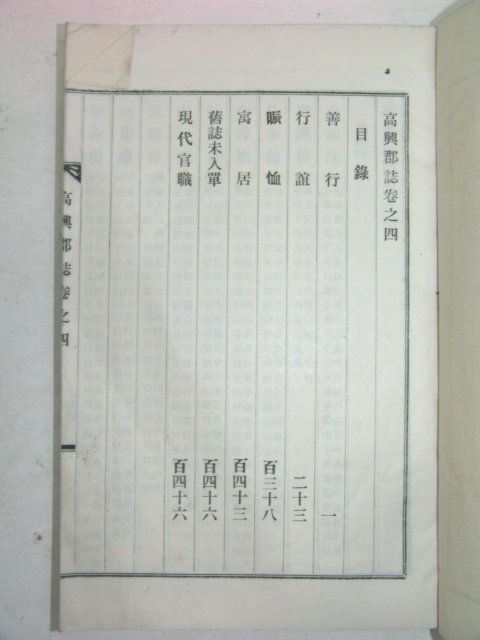 高興郡誌卷之四
目錄
善行 一
行誼 二十三
賑恤 百三十八
寓居 百四十三
舊誌未入單 百四十六
現代官職 百四十六
高興郡誌卷之四